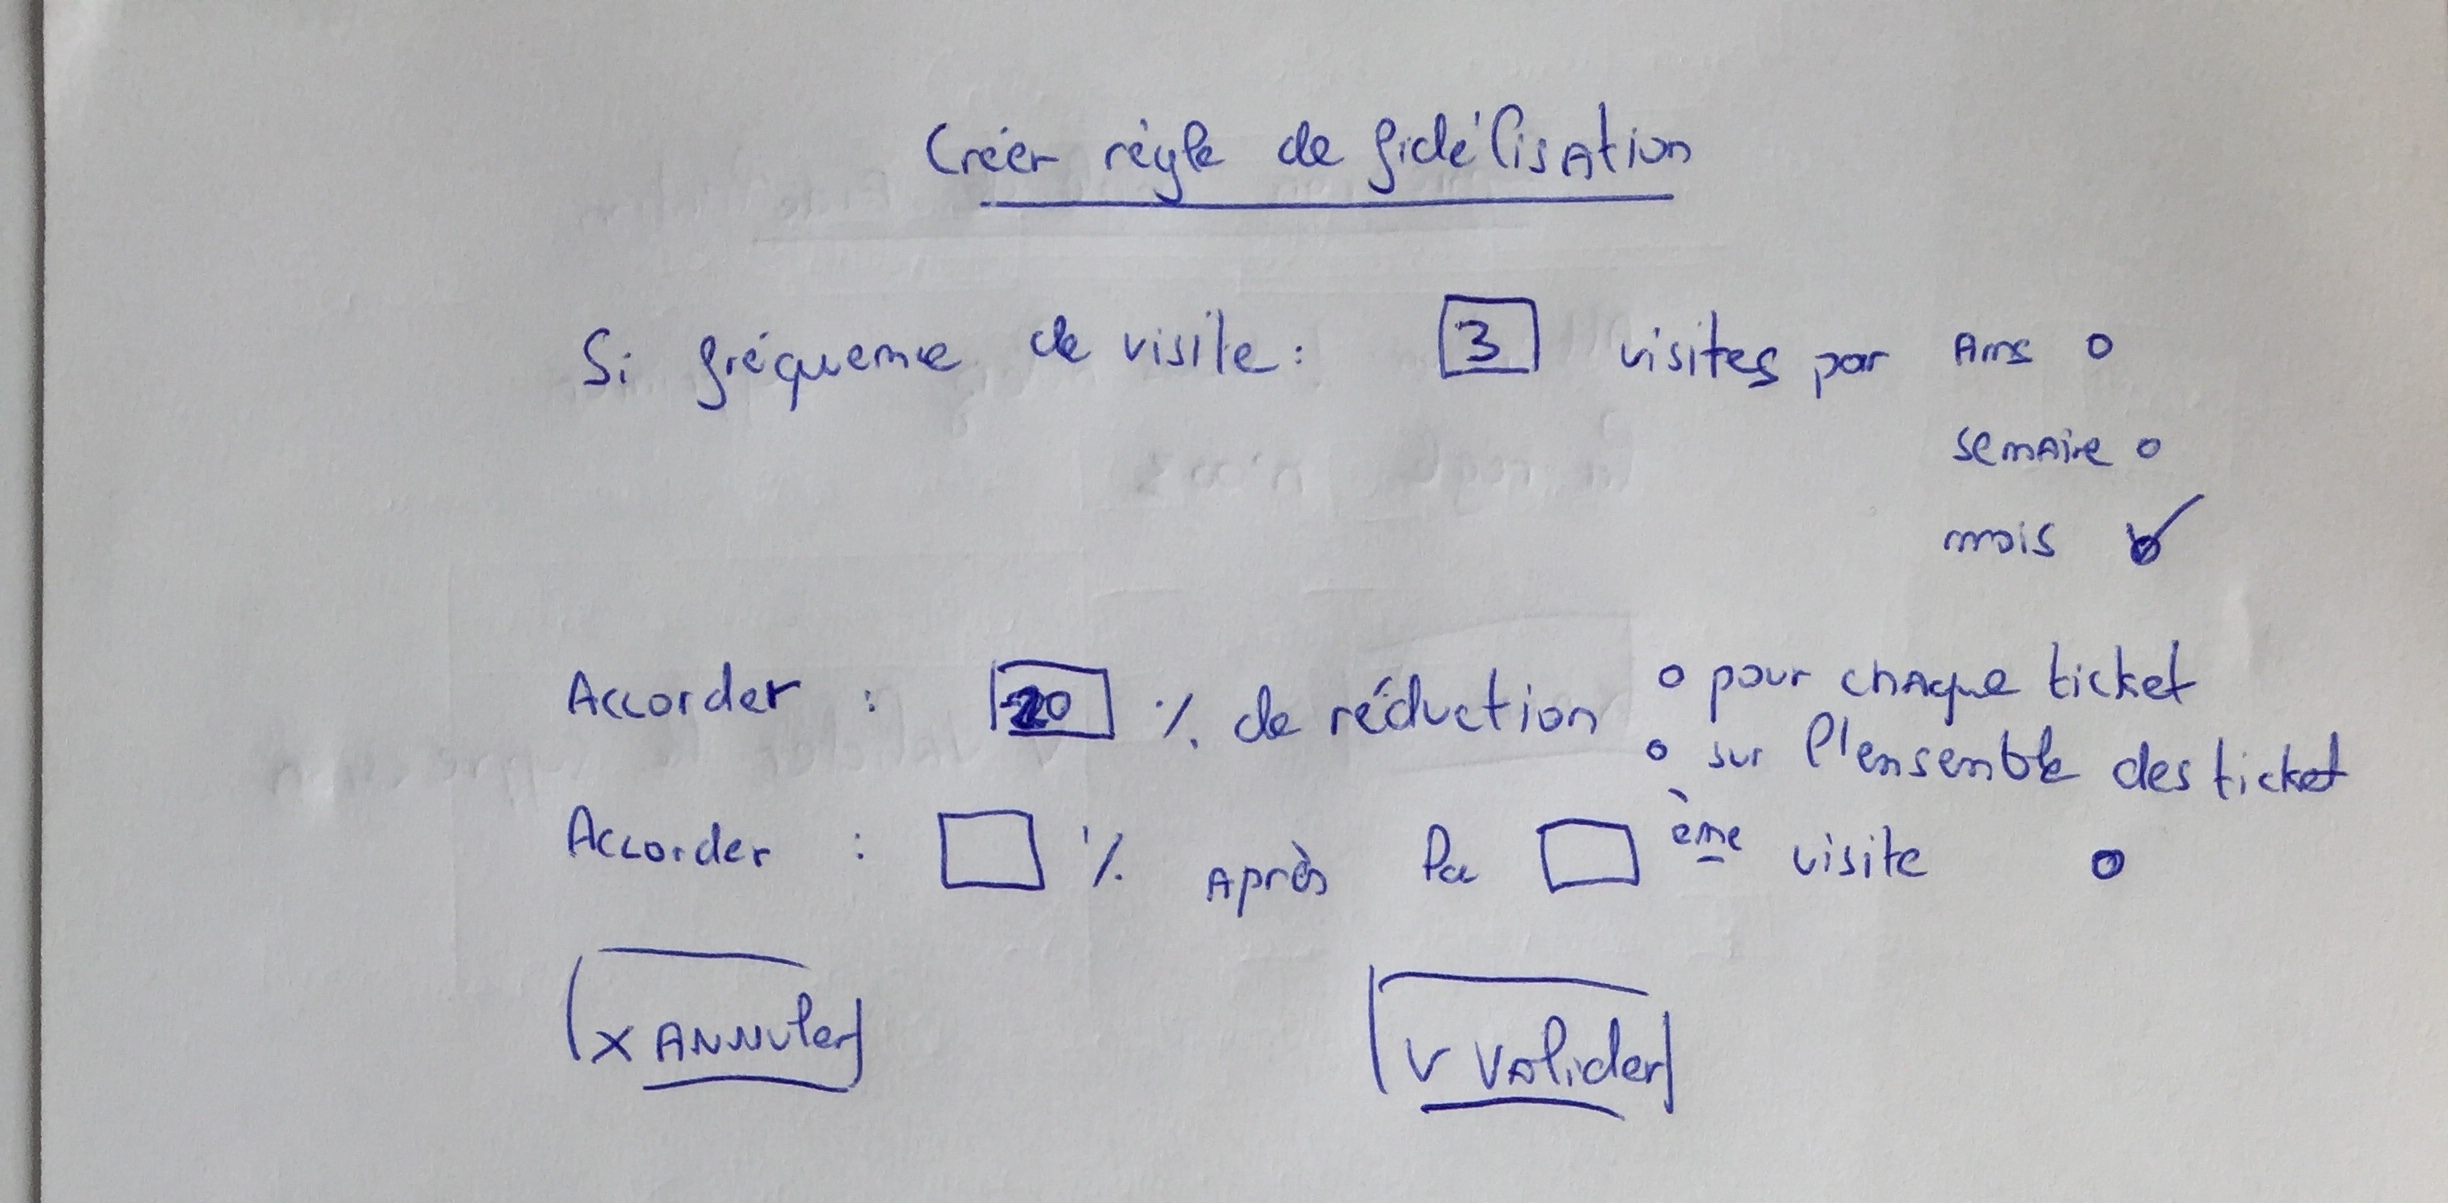 Créer règle de fidélisation
Si fréquence de visite : 3 visites par Ans
semaine
mois
Accorder : 20 % de réduction pour chaque ticket
sur l'ensemble des ticket
Accorder : % Après la ème visite
X ANNuler
V VAlider